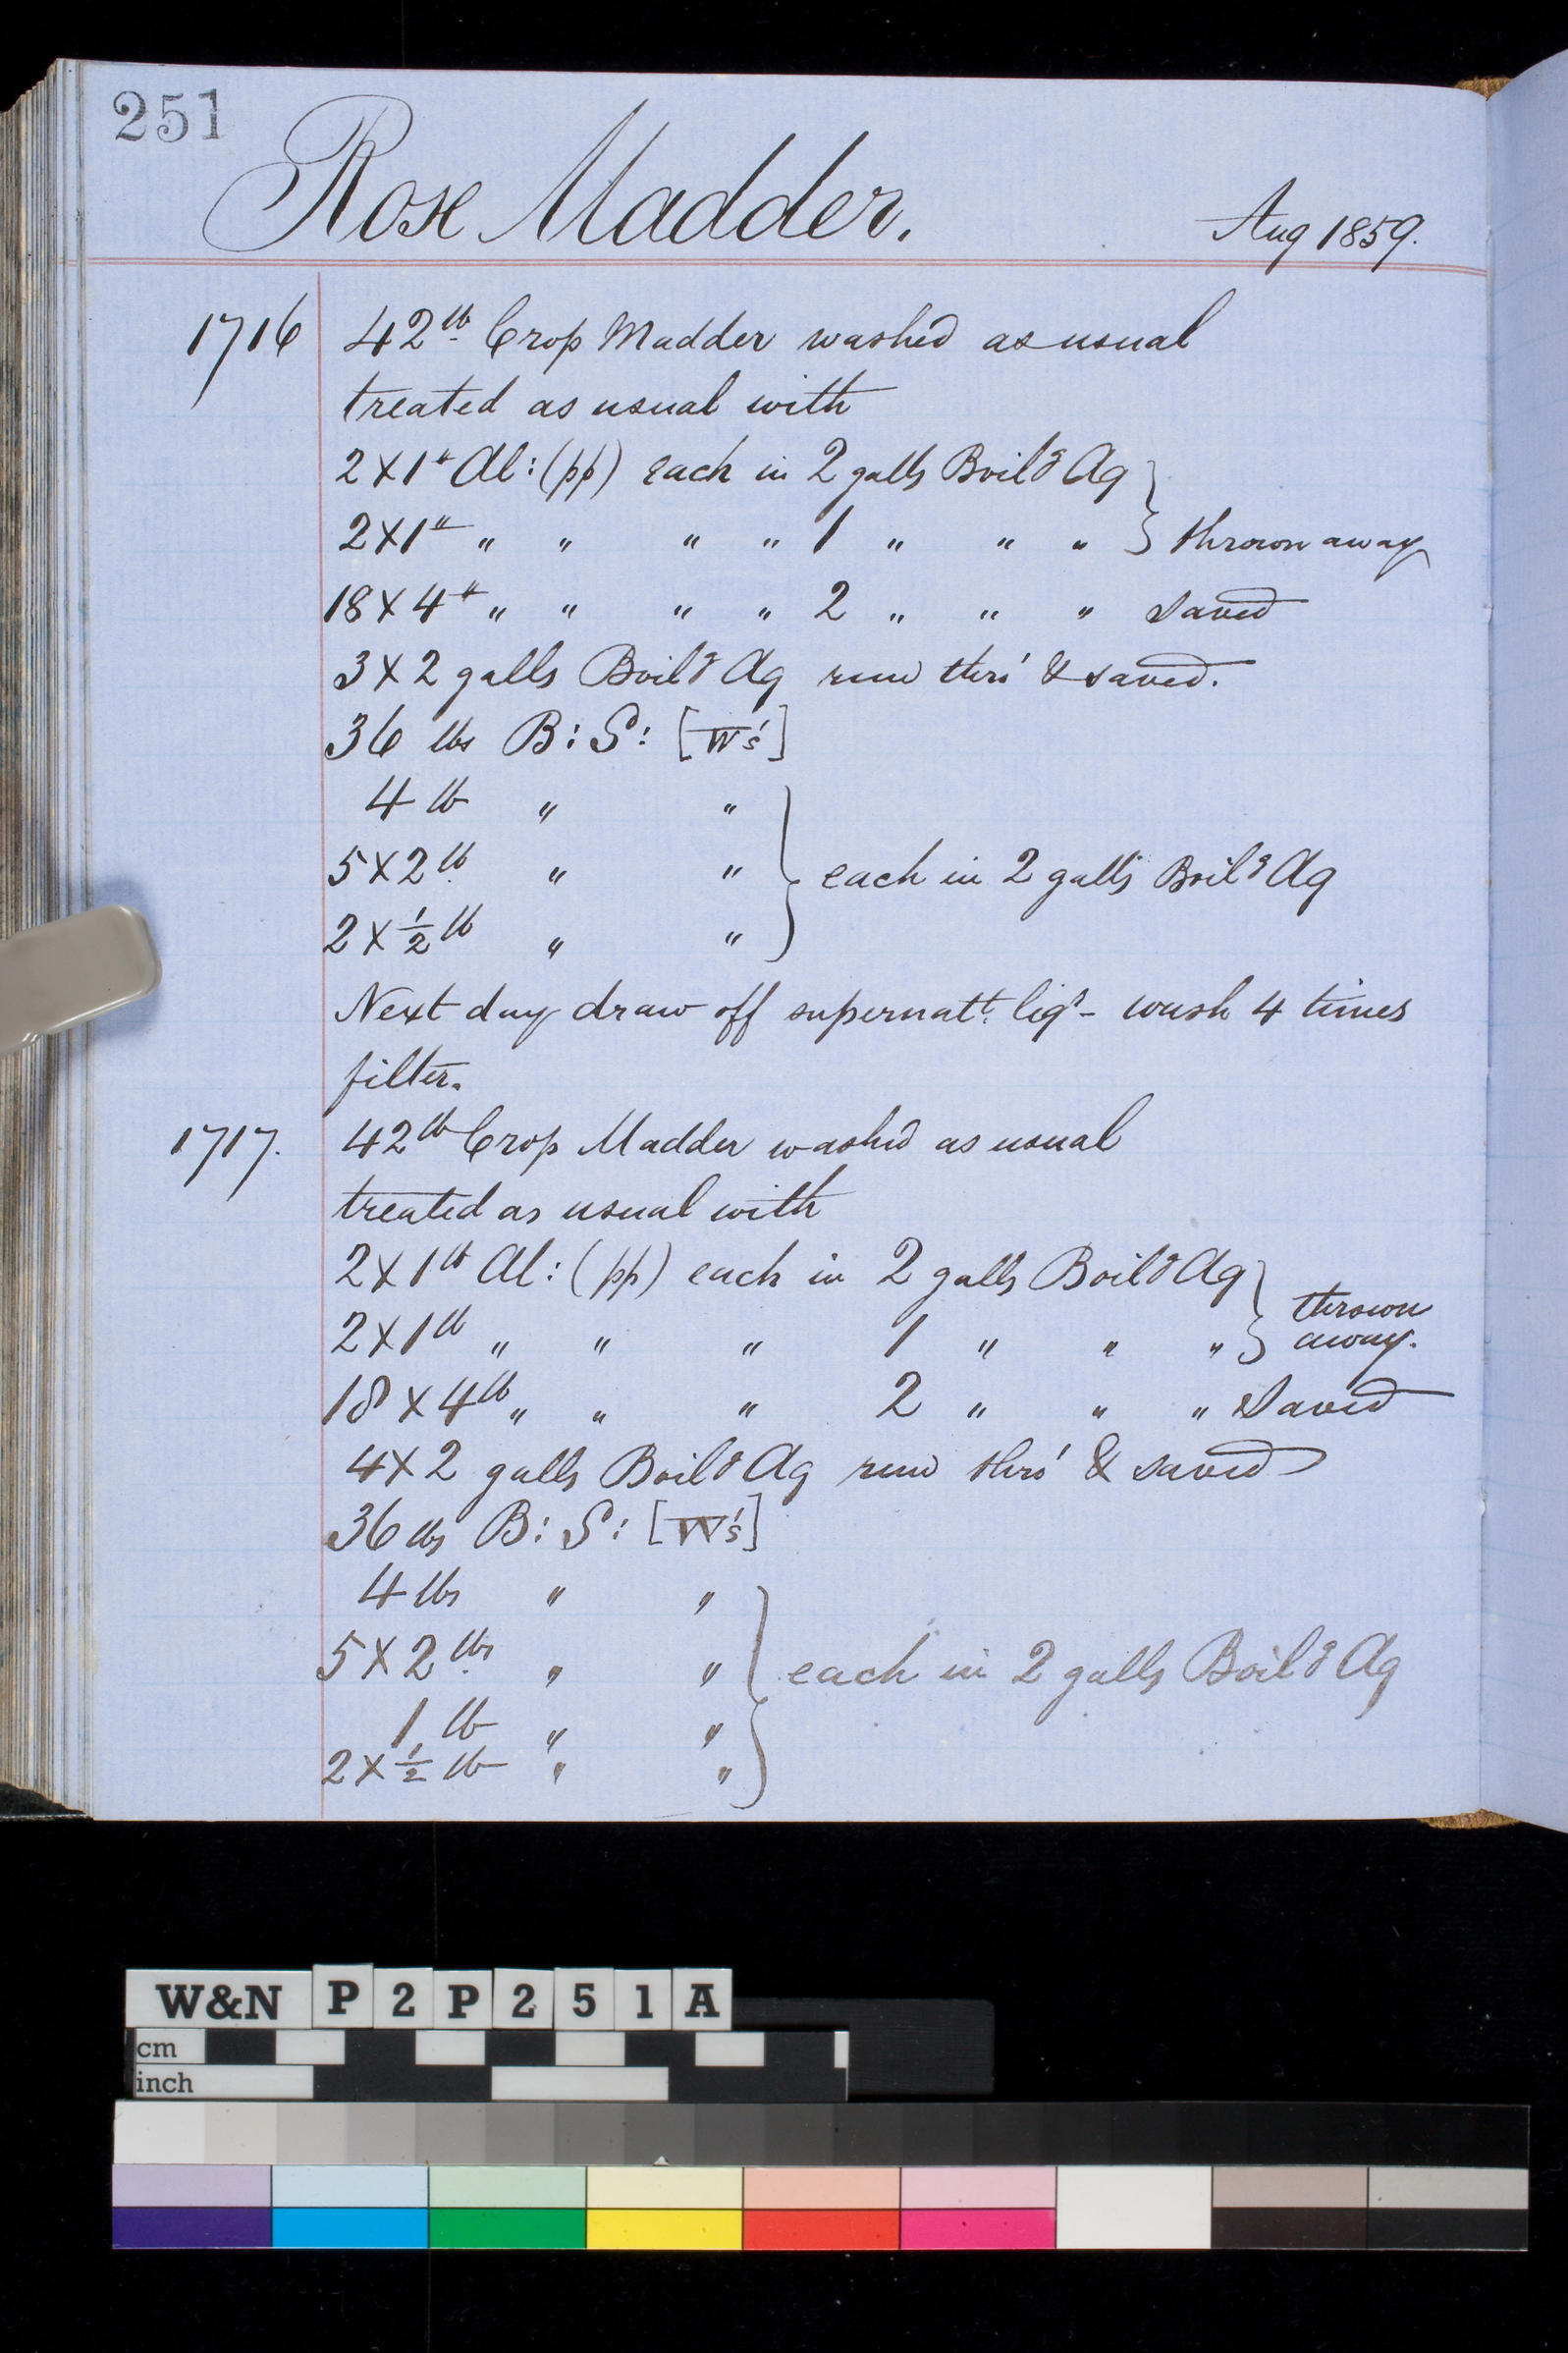 251
Rose Madder.
Aug 1859.
1716 42lb Crop Madder washed as usual
treated as usual with
2 x 1lb Al: (pp) each in 2 galls Boilg Aq
2 x 1lb " " " " 1 " " " } thrown away
18 x 4lb " " " " 2 " " " Saved
3 x 2 galls Boilg Aq run thro' & saved.
36 lbs B: S: [W's]
4 lb " "
5 x 2lb " " } each in 2 galls Boilg Aq
2 x 1/2 lb " "
Next day draw off supernatt. liqr - wash 4 times
filter.
1717. 42lb Crop Madder washed as usual
treated as usual with
2 x 1lb Al: (pp) each in 2 galls Boilg Aq
2 x 1lb " " " 1 " " " } thrown away.
18 x 4lb " " " 2 " " " Saved
4 x 2 galls Boilg Aq run thro' & saved
36 lbs B: S: [W's]
4 lbs " "
5 x 2 lbs " " } each in 2 galls Boilg Aq
1 lb " "
2 x 1/2 lb " "
W&N P2P251A
cm
inch